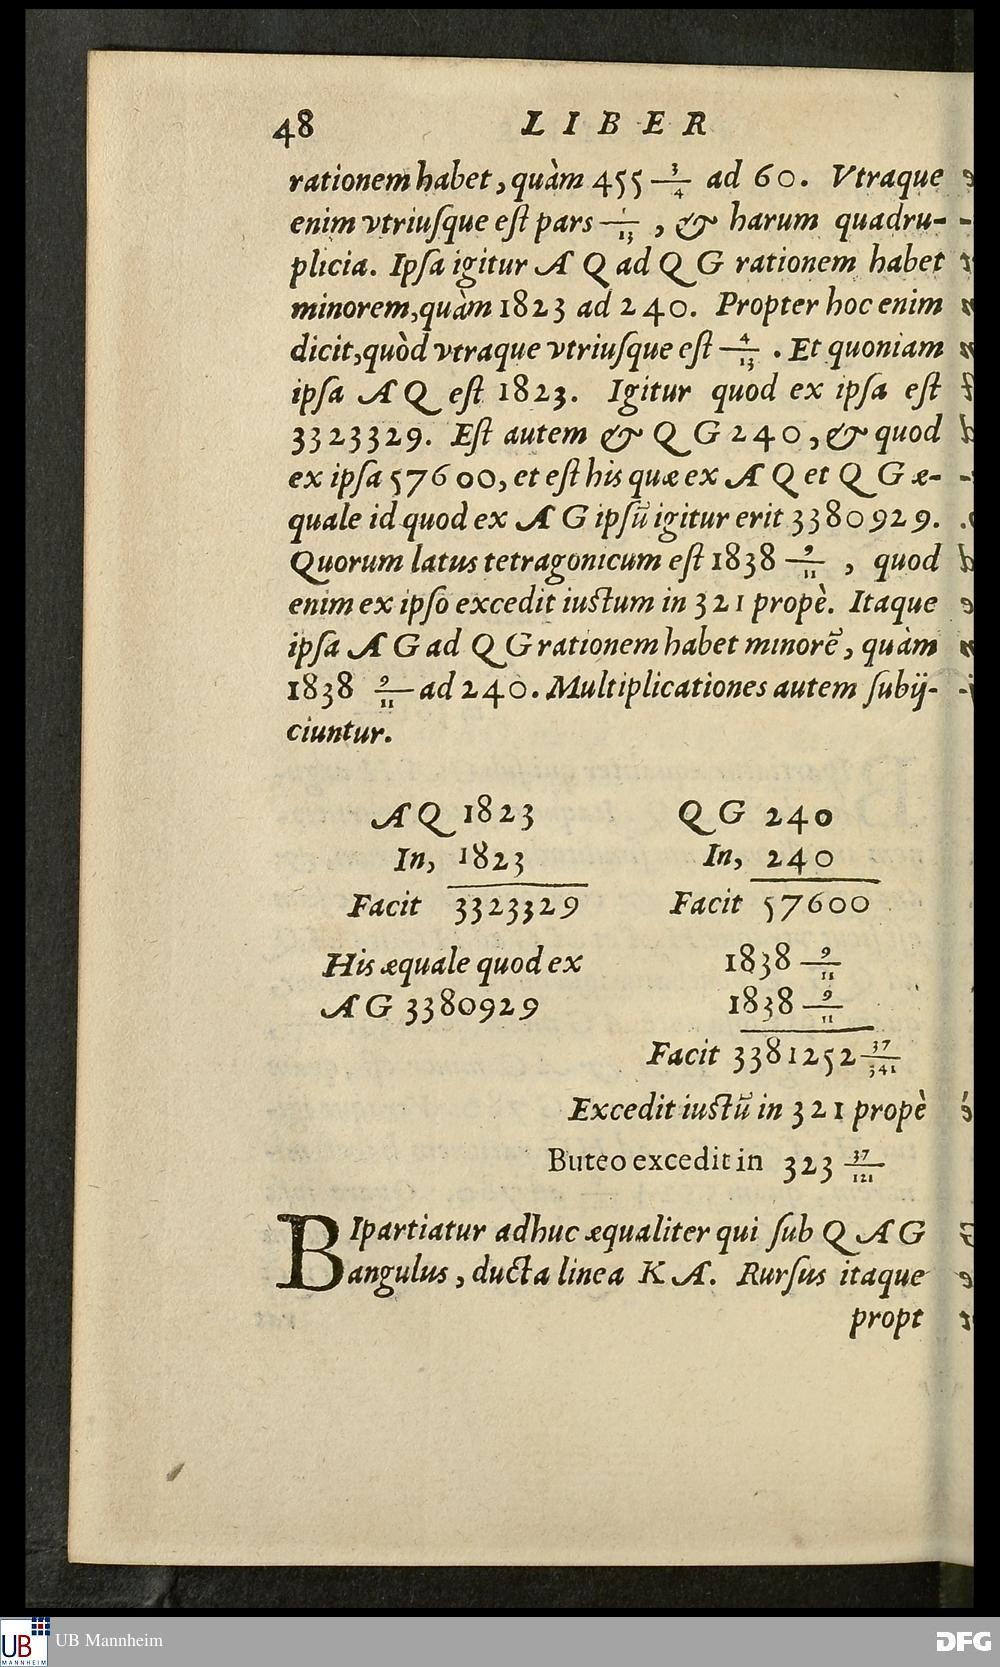 48 LIBER
rationem habet, quàm 455 3/4 ad 60. Vtraque
enim vtriuſque eſt pars 1/13, & harum quadru-
plicia. Ipſa igitur A Q ad Q G rationem habet
minorem, quàm 1823 ad 240. Propter hoc enim
dicit, quòd vtraque vtriuſque eſt 4/13. Et quoniam
ipſa A Q eſt 1823. Igitur quod ex ipſa eſt
3323329. Eſt autem & Q G 240, & quod
ex ipſa 57600, et eſt his quæ ex A Q et Q G æ-
quale id quod ex A G ipſũ igitur erit 3380929.
Quorum latus tetragonicum eſt 1838 9/11, quod
enim ex ipſo excedit iuſtum in 321 propè. Itaque
ipſa A G ad Q G rationem habet minorẽ, quàm
1838 9/11 ad 240. Multiplicationes autem ſubij-
ciuntur.
A Q 1823
In, 1823
Facit 3323329
Q G 240
In, 240
Facit 57600
His æquale quod ex
A G 3380929
1838 9/11
1838 9/11
Facit 3381252 37/341
Excedit iuſtũ in 321 propè
Buteo excedit in 323 37/121
BIpartiatur adhuc æqualiter qui ſub Q A G
angulus, ducta linea K A. Rurſus itaque
propt
UB MANNHEIM
UB Mannheim
DFG